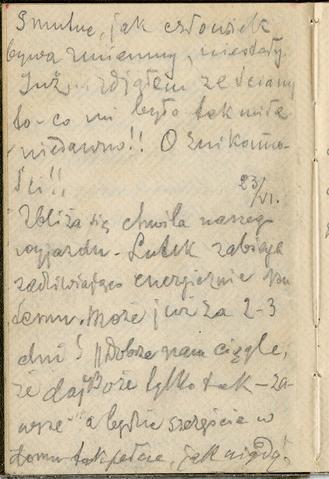 Smutne, jak człowiek
bywa zmienny, niestały.
Już zdjąłem ze ściany
to-co mi było tak miłe
niedawno!! O znikomo-
ści!!
23/VI.
Zbliża się chwila naszego
wyjazdu. Lutek zabiega
zadziwiająco energicznie ku
temu. Może już za 2-3
dni! "Dobrze nam ciągle,
że daj Boże tylko tak - za-
wsze" a będzie szczęście w
domu tak pełne, jak nigdy!